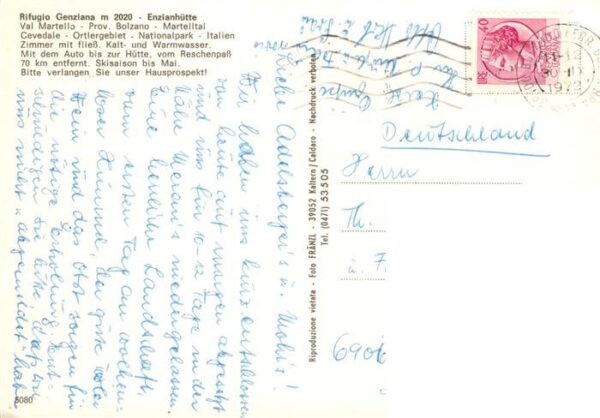 Rifugio Genziana m 2020 - Enzianhütte
Val Martello - Prov. Bolzano - Martelltal
Cevedale - Ortlergebiet - Nationalpark - Italien
Zimmer mit fließ. Kalt- und Warmwasser.
Mit dem Auto bis zur Hütte, vom Reschenpaß
70 km entfernt. Skisaison bis Mai.
Bitte verlangen Sie unser Hausprospekt!
Liebe Adelsberger's u.
Wir haben uns kurzentschlossen
von heute auf morgen abgesetzt
und uns für 10-12 Tage in der
Nähe Meran's niedergelassen.
Eine herrliche Landschaft,
vom ersten Tag an wochen-
los Sonne, der gute rote
Wein und das Obst sorgen für
die nötige Erholung. Ent-
schuldigen Sie bitte, daß wir
uns nicht abgemeldet haben
Herzl. Grüße
Riproduzione vietata - Foto FRÄNZL - 39052 Kaltern/Caldaro - Nachdruck verboten
Tel. (0471) 53505
40
1972
Deutschland
Herrn
Th.
u. F
690
5080